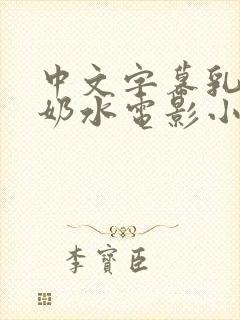 中文字幕乳
奶水电影小
李寳臣